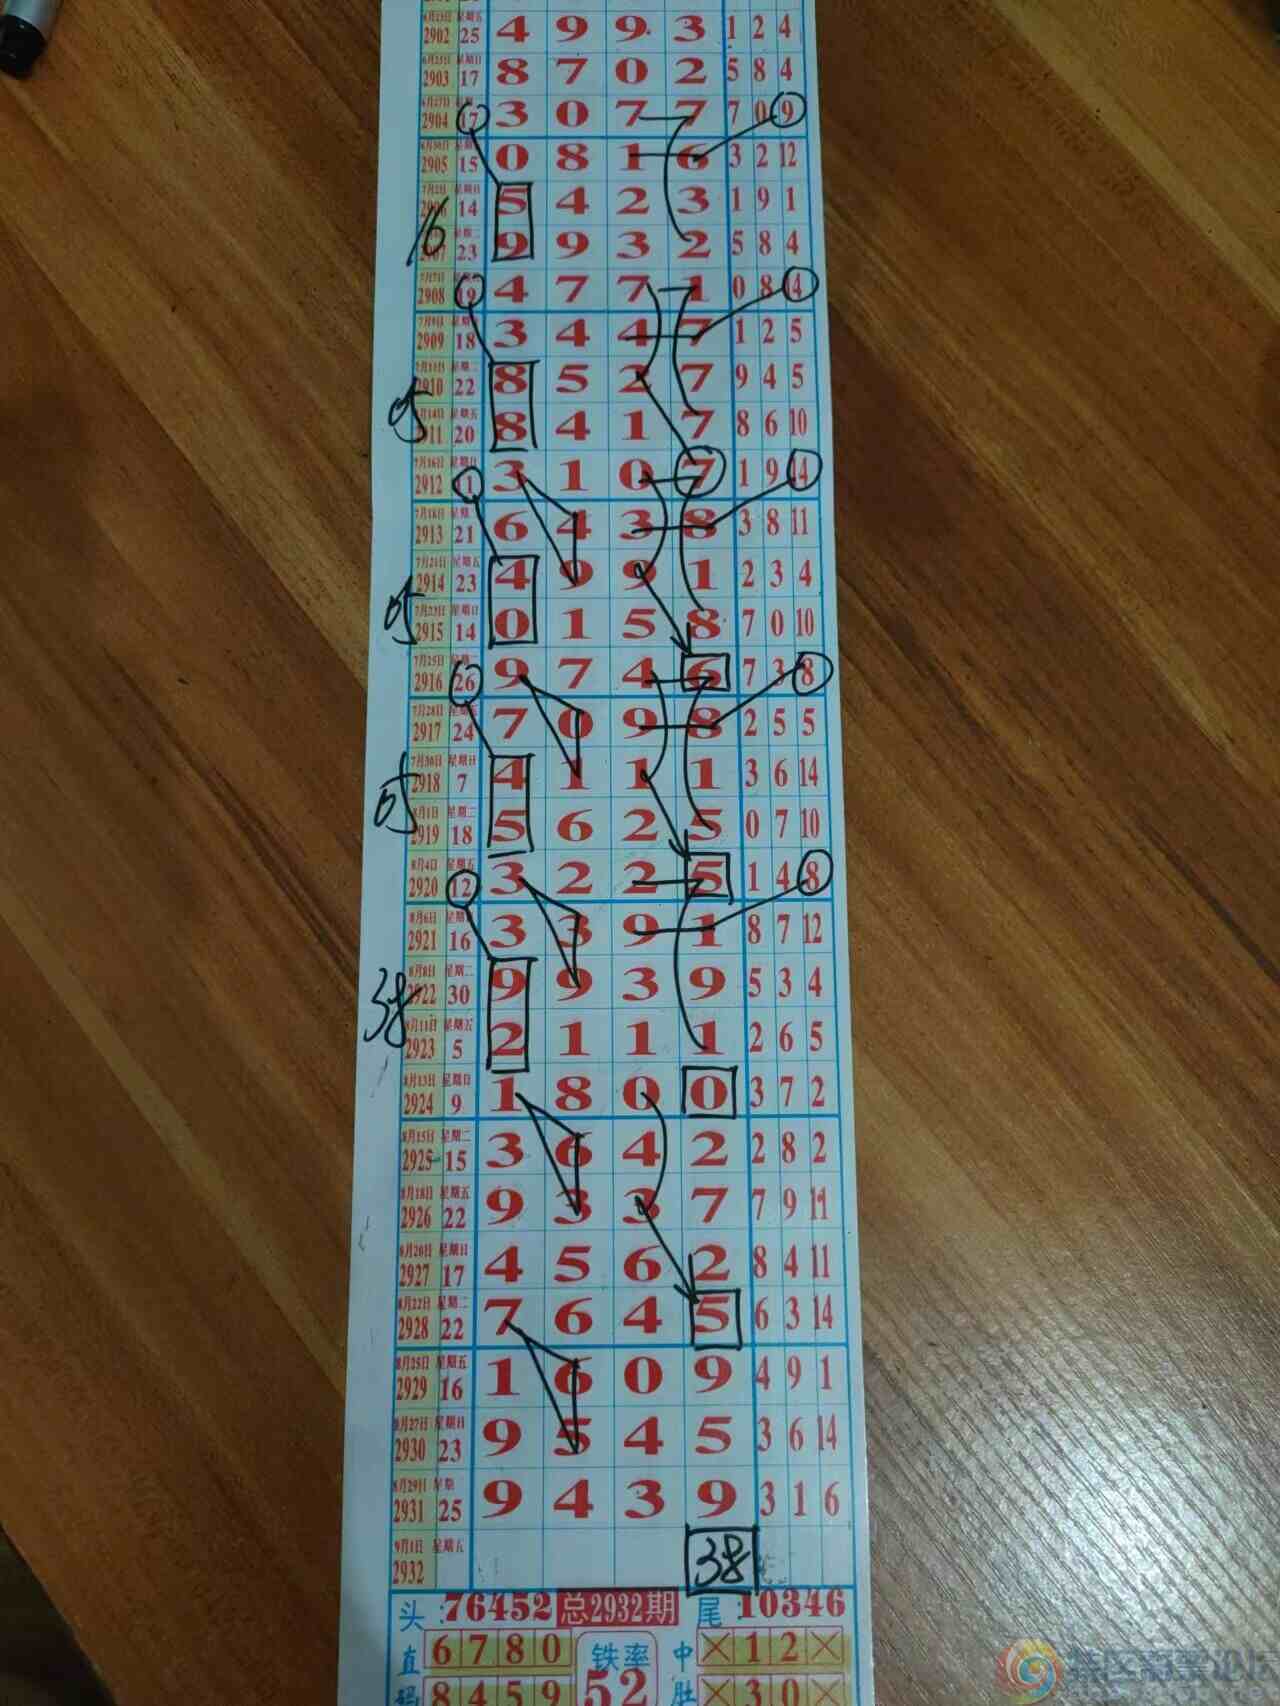 6月23日 星期五
2902 25 4 9 9 3 1 2 4
6月25日 星期日
2903 17 8 7 0 2 5 8 4
6月27日 星期
2904 17 3 0 7 7 7 0 9
6月30日 星期五
2905 15 0 8 1 6 3 2 12
7月2日 星期日
2906 14 5 4 2 3 1 9 1
16
星期二
2907 23 9 9 3 2 5 8 4
7月7日 星期
2908 19 4 7 7 1 0 8 14
7月9日 星期
2909 18 3 4 4 7 1 2 5
7月11日 星期二
2910 22 8 5 2 7 9 4 5
05
7月14日 星期五
2911 20 8 4 1 7 8 6 10
7月16日 星期日
2912 1 3 1 0 7 1 9 14
7月18日 星期二
2913 21 6 4 3 8 3 8 11
7月21日 星期五
2914 23 4 9 9 1 2 3 4
05
7月23日 星期日
2915 14 0 1 5 8 7 0 10
7月25日 星期二
2916 26 9 7 4 6 7 3 8
7月28日 星期五
2917 24 7 0 9 8 2 5 5
7月30日 星期日
2918 7 4 1 1 1 3 6 14
05
8月1日 星期二
2919 18 5 6 2 5 0 7 10
8月4日 星期五
2920 12 3 2 2 5 1 4 8
8月6日 星期日
2921 16 3 3 9 1 8 7 12
8月8日 星期二
2922 30 9 9 3 9 5 3 4
38
8月11日 星期五
2923 5 2 1 1 1 2 6 5
8月13日 星期日
2924 9 1 8 0 0 3 7 2
8月15日 星期二
2925 15 3 6 4 2 2 8 2
8月18日 星期五
2926 22 9 3 3 7 7 9 11
8月20日 星期日
2927 17 4 5 6 2 8 4 11
8月22日 星期二
2928 22 7 6 4 5 6 3 14
8月25日 星期五
2929 16 1 6 0 9 4 9 1
8月27日 星期日
2930 23 9 5 4 5 3 6 14
8月29日 星期
2931 25 9 4 3 9 3 1 6
9月1日 星期五
2932 38
头:76452 总2932期 尾:10346
直 6 7 8 0 铁率 中 × 1 2 ×
码 8 4 5 9 52 肚 × 3 0 ×